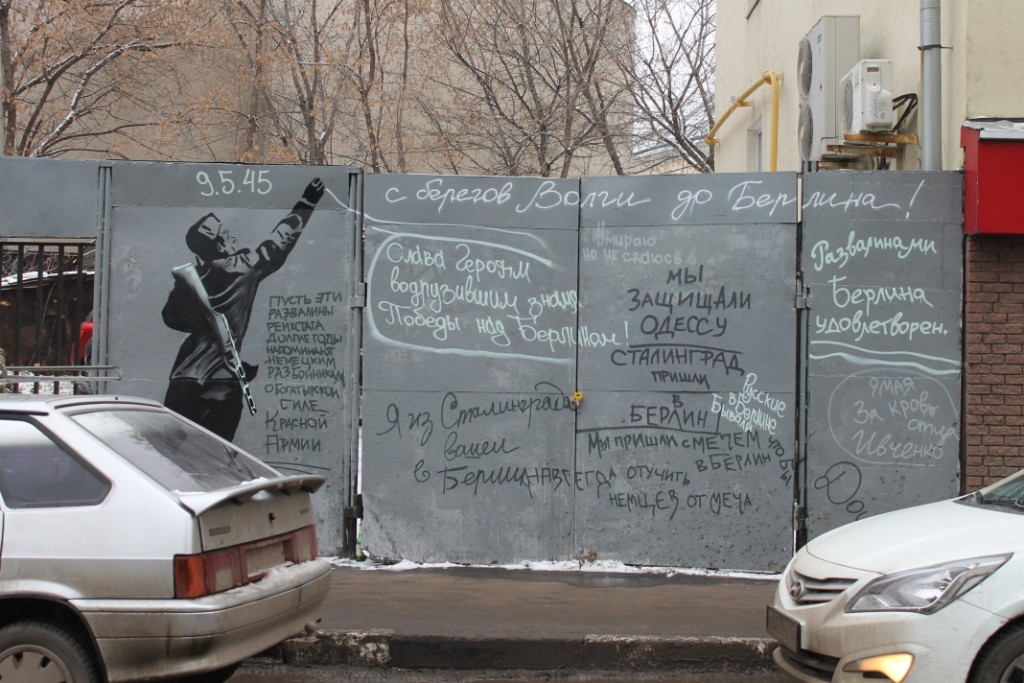 9.5.45
с берегов Волги до Берлина!
ПУСТЬ ЭТИ
РАЗВАЛИНЫ
РЕЙХСТАГА
ДОЛГИЕ ГОДЫ
НАПОМИНАЮТ
НЕМЕЦКИМ
РАЗБОЙНИКАМ
О БОГАТЫРСКОЙ
СИЛЕ
КРАСНОЙ
АРМИИ
Слава Героям
водрузившим знамя
Победы над Берлином!
Я из Сталинграда
в Берлин
Умираю
но не сдаюсь
МЫ
ЗАЩИЩАЛИ
ОДЕССУ
СТАЛИНГРАД
ПРИШЛИ
В
БЕРЛИН
Русские
в Берлине
Бывали
МЫ ПРИШЛИ С МЕЧЕМ
В БЕРЛИН
ЧТОБЫ
НАВСЕГДА ОТУЧИТЬ
НЕМЦЕВ ОТ МЕЧА
Развалинами
Берлина
удовлетворен.
9 МАЯ
За кровь
отца
Ивченко